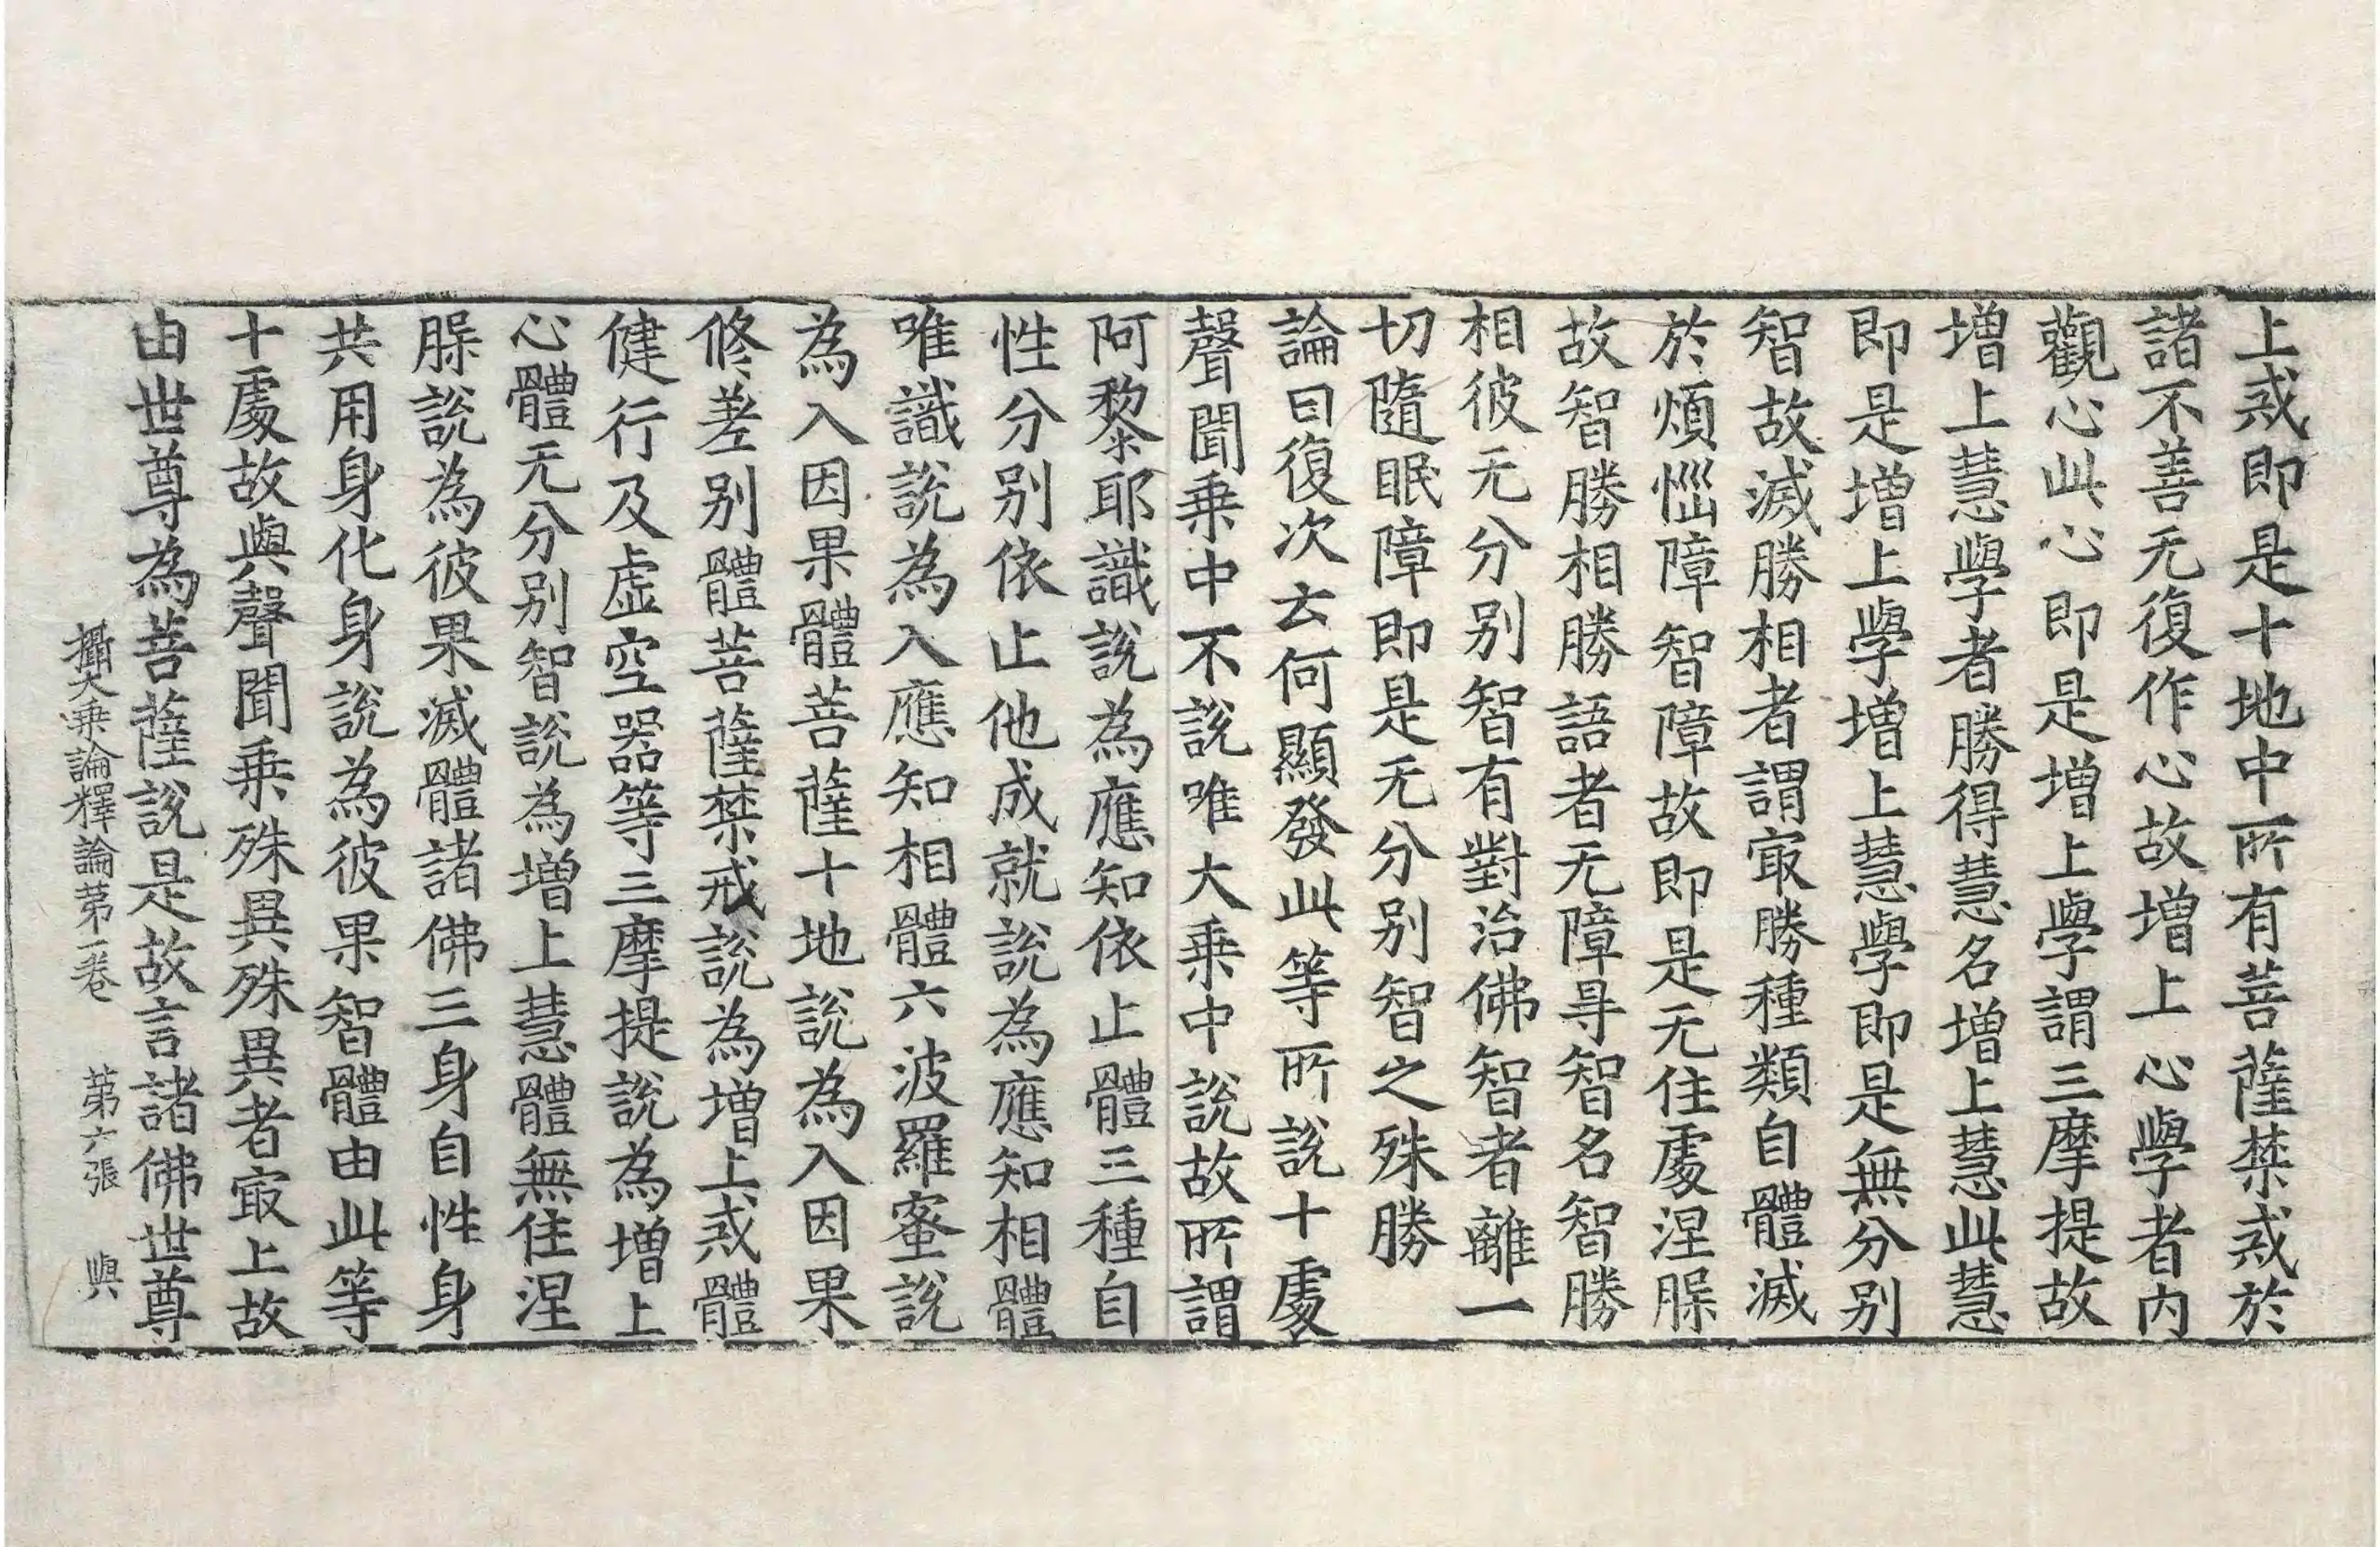 上戒即是十地中所有菩薩禁戒於
諸不善无復作心故增上心學者内
觀心此心即是增上學謂三摩提故
增上慧學者勝得慧名增上慧此慧
即是增上學增上慧學即是無分别
智故滅勝相者謂㝡勝種類自體滅
於煩惱障智障故即是无住處涅槃
故智勝相勝語者无障㝵智名智勝
相彼无分别智有對治佛智者離一
切隨眠障即是无分别智之殊勝
論曰復次云何顯發此等所說十處
聲聞乗中不說唯大乗中說故所謂
阿黎耶識說為應知依止體三種自
性分别依止他成就說為應知相體
唯識說為入應知相體六波羅蜜說
為入因果體菩薩十地說為入因果
修差别體菩薩禁戒說為增上戒體
健行及虛空器等三摩提說為增上
心體无分别智說為增上慧體無住涅
槃說為彼果滅體諸佛三身自性身
共用身化身說為彼果智體由此等
十處故與聲聞乗殊異殊異者㝡上故
由世尊為菩薩說是故言諸佛世尊
攝大乗論釋論第一卷　第六張　與